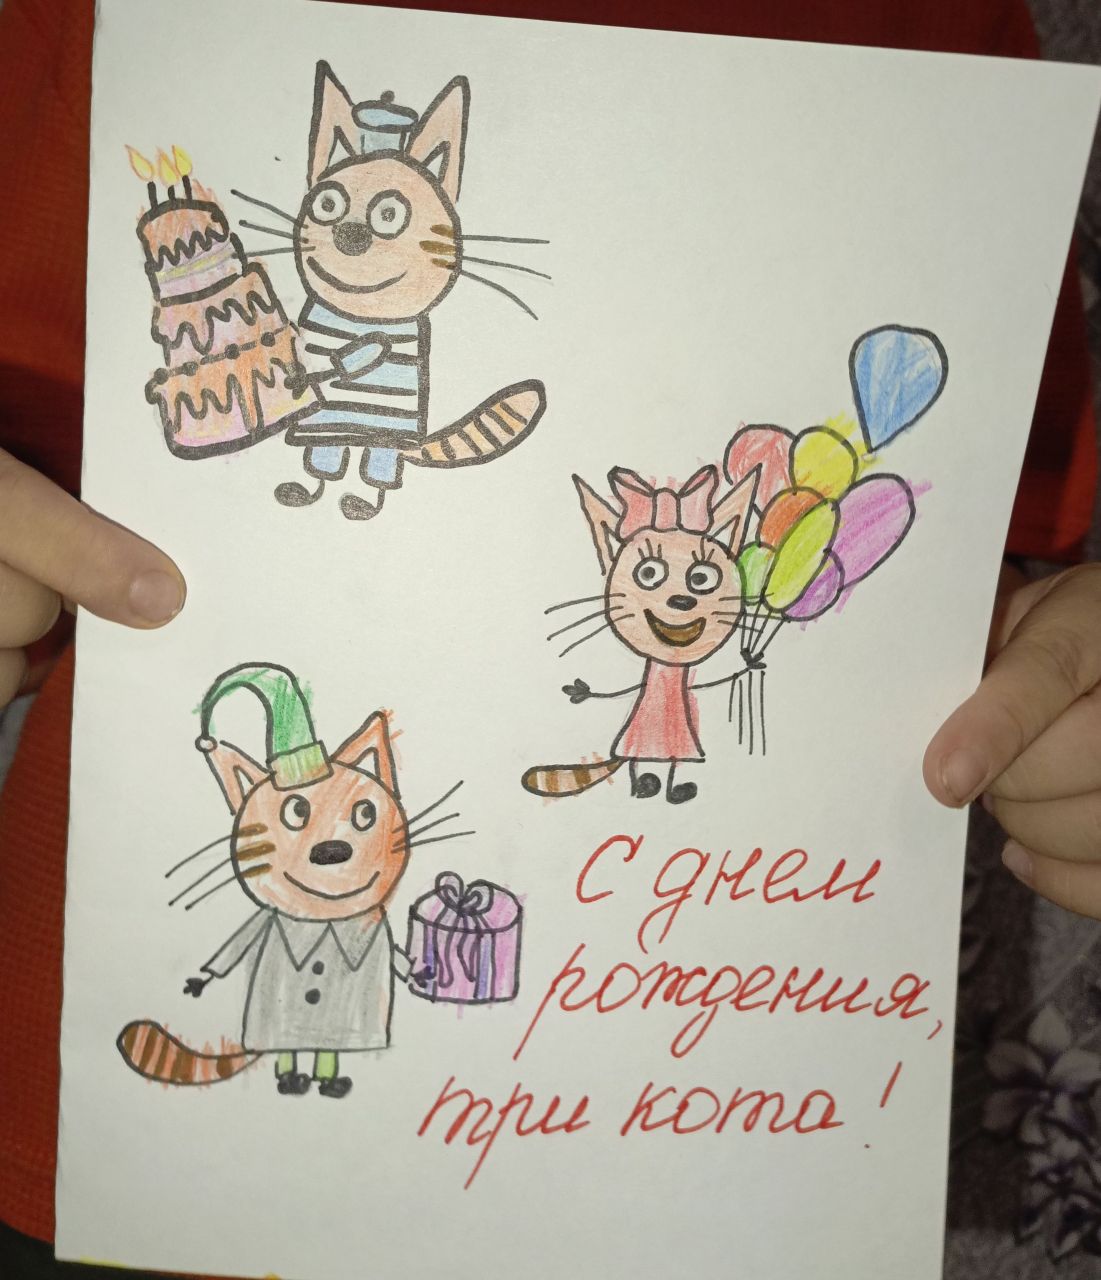 С днем
рождения,
три кота!